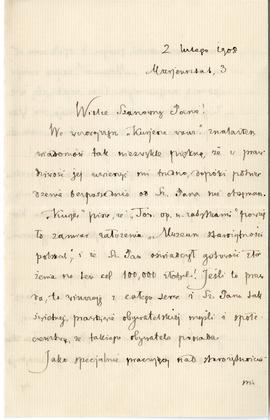 2 lutego 1908
Marjensztat, 3
Wielce Szanowny Panie!
We wczorajszym „Kurjerze warsz" znalazłem
wiadomość tak niezwykle piękną, że w praw-
dziwość jej uwierzyć mi trudno, dopóki potwier-
dzenia bezpośrednio od Sz. Pana nie otrzymam.
„Kurjer" pisze, że „Tow. op. n. zabytkami" powzię
ło zamiar założenia „Muzeum starożytności
polskich" i że Sz. Pan oświadczył gotowość zło-
żenia na ten cel 100,000 rubli! Jeśli to praw-
da, to winszuję z całego serca i Sz. Panu tak
świetnej, prawdziwie obywatelskiej myśli i społe-
czeństwu, że takiego obywatela posiada.
Jako specjalnie pracujący nad starożytnościa-
mi